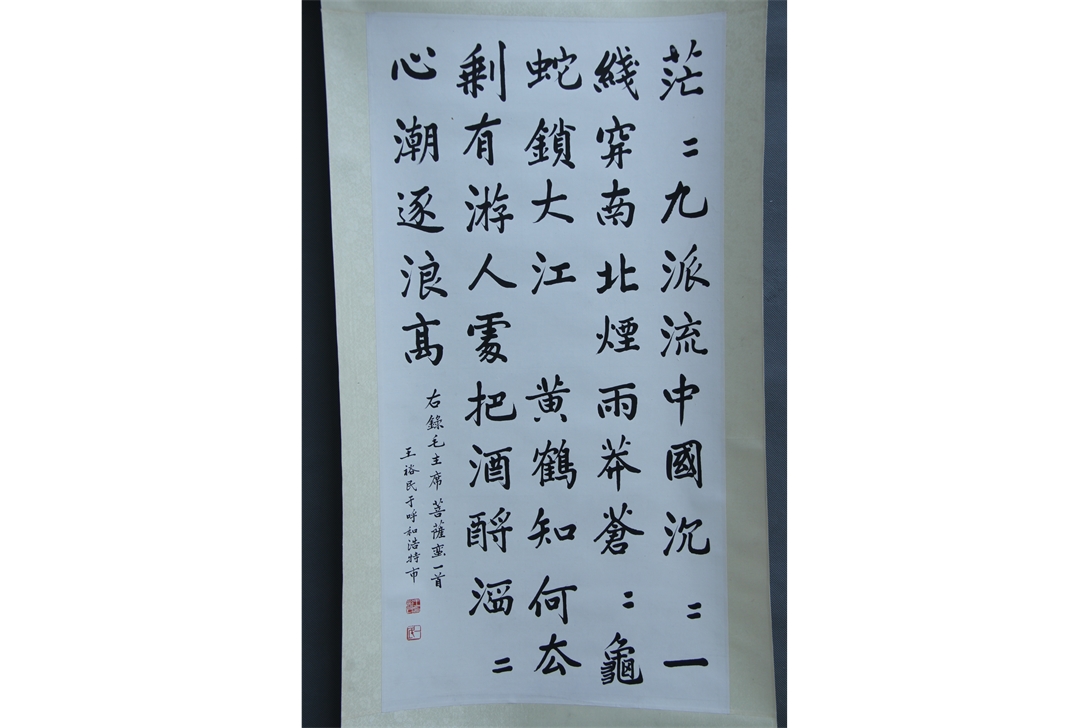 茫〻九派流中國沉〻一
綫穿南北煙雨莽蒼〻龜
蛇鎖大江 黄鶴知何厺
剩有游人處把酒酹滔〻
心潮逐浪髙
右錄毛主席菩薩蛮一首
王裕民于呼和浩特市